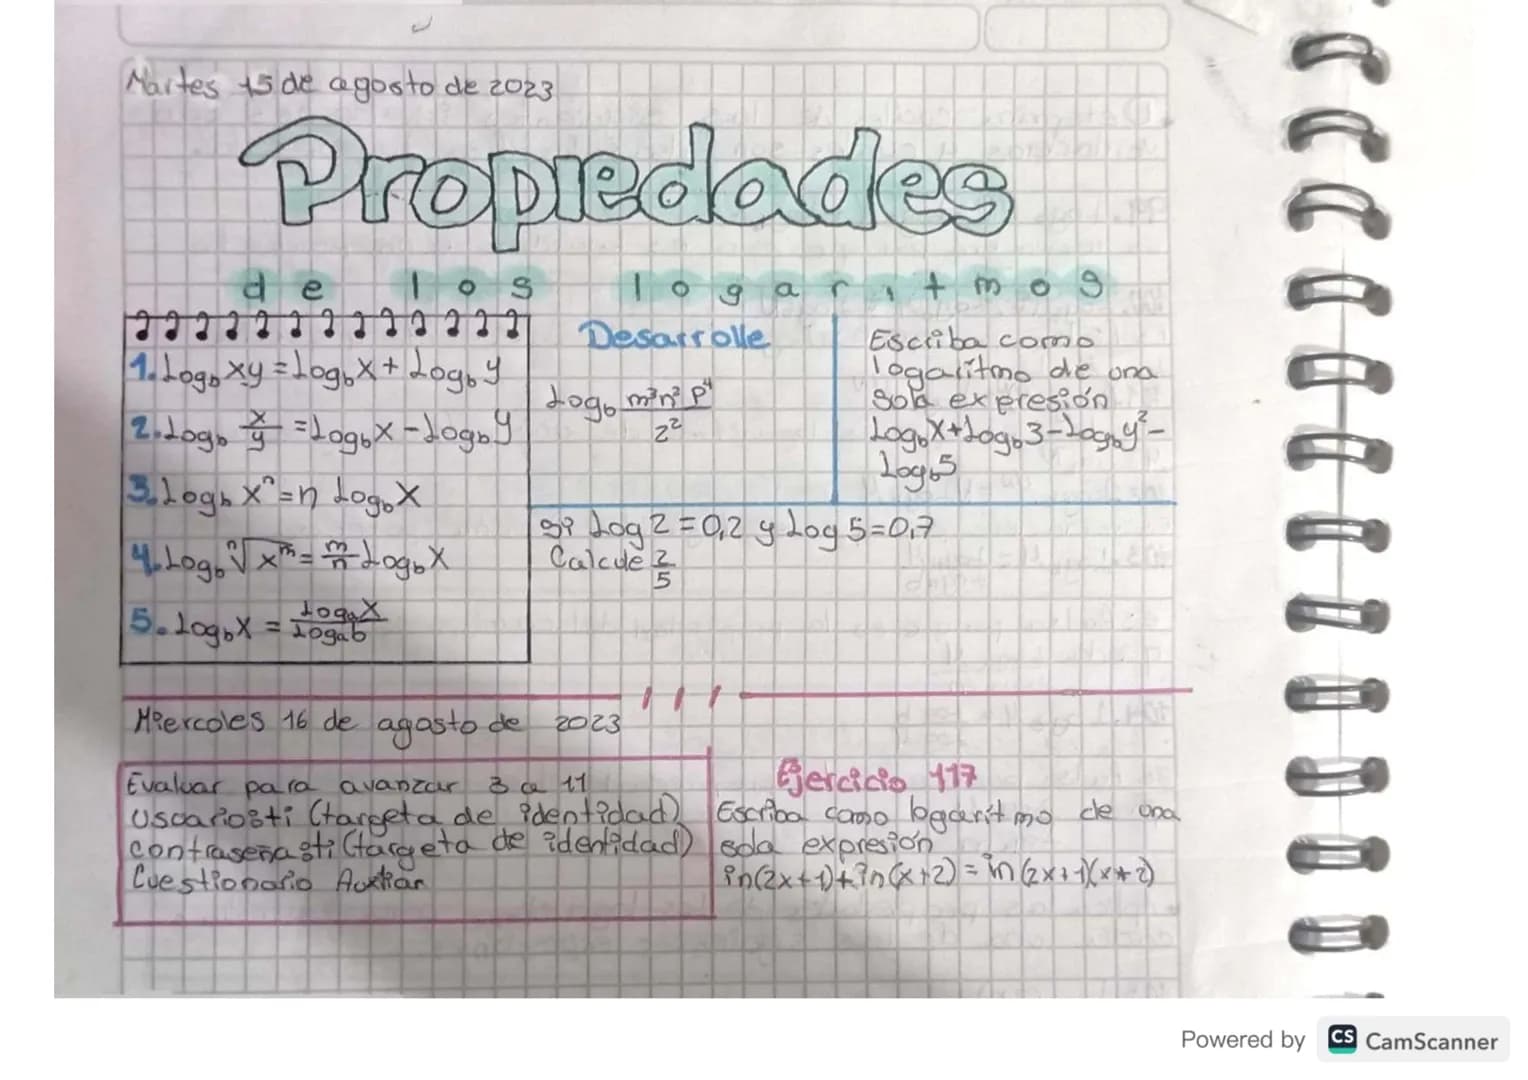 Martes 15 de agosto de 2023
Propiedades
de los logaritmos
1. Log_b xy = Log_b x + Log_b y
2. Log_b x/y = Log_b x - Log_b y
3. Log_b x^n = n Log_b x
4. Log_b ⁿ√x^m = m/n Log_b x
5. Log_b x = Log_a x / Log_a b
Desarrolle
Log_b m³n²p⁴ / z²
Escriba como
logaritmo de una
sola expresión
Log_b x + Log_b 3 - Log_b y² -
Log_b 5
si Log 2 = 0,2 y Log 5 = 0,7
Calcule 2/5
Miercoles 16 de agosto de 2023
Evaluar para avanzar 3 a 11
usuario: ti (targeta de identidad)
contraseña: ti (targeta de identidad)
Cuestionario
Ejercicio 117
Escriba como logaritmo de una
sola expresión
in(2x+1)+in(x+2) = in(2x+1)(x+2)
Powered by CS CamScanner